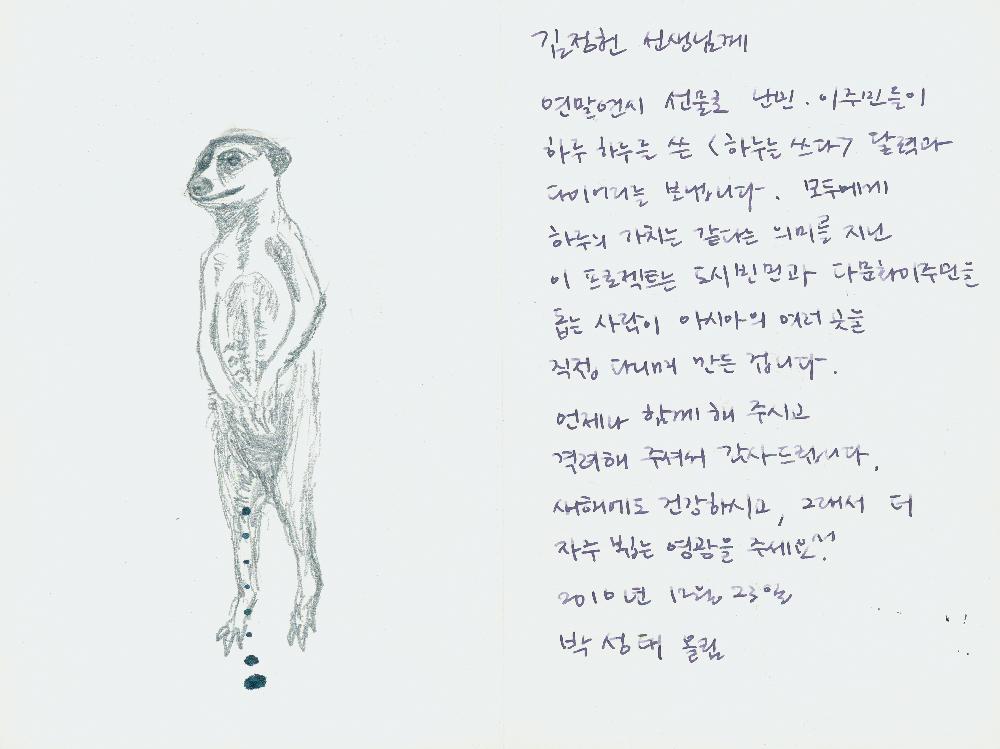 김정헌 선생님께
연말연시 선물로 난민·이주민들이
하루 하루를 쓴 <하루를 쓰다> 달력과
다이어리를 보냅니다. 모두에게
하루의 가치는 같다는 의미를 지닌
이 프로젝트는 도시빈민과 다문화이주민을
돕는 사람이 아시아의 여러 곳을
직접 다니며 만든 겁니다.
언제나 함께 해 주시고
격려해 주셔서 감사드립니다.
새해에도 건강하시고, 그래서 더
자주 뵙는 영광을 주세요!
2010년 12월 23일
박성태 올림